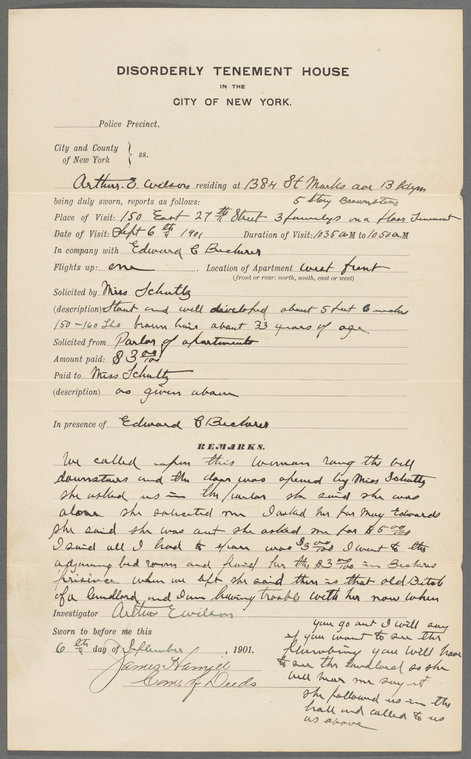 DISORDERLY TENEMENT HOUSE
IN THE
CITY OF NEW YORK.
Police Precinct.
City and County
of New York } ss.
Arthur E. Wilson residing at 1384 St Marks ave B klyn
being duly sworn, reports as follows: 5 Story Brownstone
Place of Visit: 150 East 27th Street 3 familys on a floor Tenement
Date of Visit: Sept 6th 1901 Duration of Visit: 1035 AM to 1050 AM
In company with Edward C Becherer
Flights up: one . Location of Apartment west front
(front or rear: north, south, east or west)
Solicited by Miss Schultz
(description) Stout and well developed about 5 feet 6 inches
150-160 lbs brown hair about 33 years of age
Solicited from Parlor of apartments
Amount paid: $3 00/100
Paid to Miss Schultz
(description) as given above
In presence of Edward C Becherer
REMARKS.
We called upon this woman rang the bell
downstairs and the door was opened by Miss Schultz
she asked us in the parlor she said she was
alone she solicited me I asked her for May Edwards
she said she was out she asked me for $5 00/100
I said all I had to spare was $3 00/100 I went to the
adjoining bed room and paid her the $3 00/100 in Becherers
presence when we left she said there is that old Bitch
of a landlord and I am having trouble with her now when
Investigator Arthur E Wilson
you go out I will say
if you want to see the
plumbing you will have
to see the landlord so she
will hear me say it
she followed us in the
hall and called to us
as above
Sworn to before me this
6th day of September , 1901.
James Hamill
Com. of Deeds